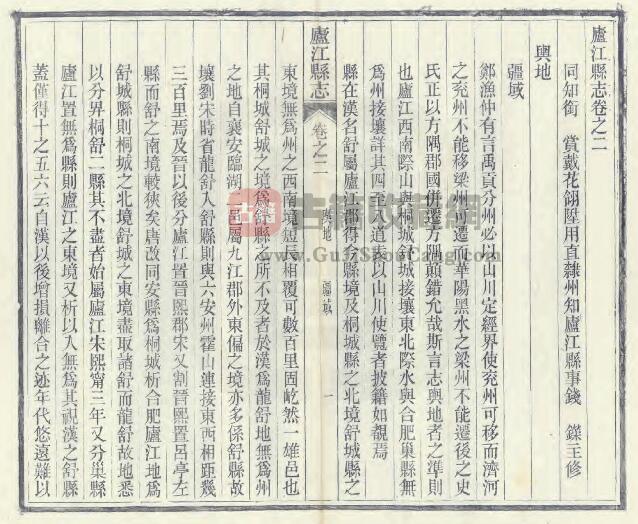 廬江縣志卷之二
同知銜 賞戴花翎陞用直隸州知廬江縣事錢 鑅主修
輿地
疆域
鄭漁仲有言禹貢分州必以山川定經界使兗州可移而濟河
之兗州不能移梁州可遷而華陽黑水之梁州不能遷後之史
氏正以方隅郡國併遷方隅顛錯允哉斯言志輿地者之準則
也廬江西南際山與桐城舒城接壤東北際水與合肥巢縣無
為州接壤詳其四至八道表以山川使覽者披籍如覩焉
縣在漢名舒屬廬江郡得今縣境及桐城縣之北境舒城縣之
廬江縣志 卷之二 輿地 疆域 一
東境無為州之西南境短長相覆可數百里固屹然一雄邑也
其桐城舒城之境為舒縣之所不及者於漢為龍舒地無為州
之地自襄安臨湖二邑屬九江郡外東偏之境亦多係舒縣故
壤劉宋時省龍舒入舒縣則與六安州霍山連接東西相距幾
三百里焉及晉以後分廬江置晉熙郡宋又割晉熙置呂亭左
縣而舒之南境較狹矣唐改同安縣為桐城析合肥廬江地為
舒城縣則桐城之北境舒城之東境盡取諸舒而龍舒故地悉
以分界桐舒二縣其不盡者始屬廬江宋熙甯三年又分巢縣
廬江置無為縣則廬江之東境又析以入無為其視漢之舒縣
蓋僅得十之五六云自漢以後增損離合之迹年代悠遠難以
www.GuJiShouCang.com